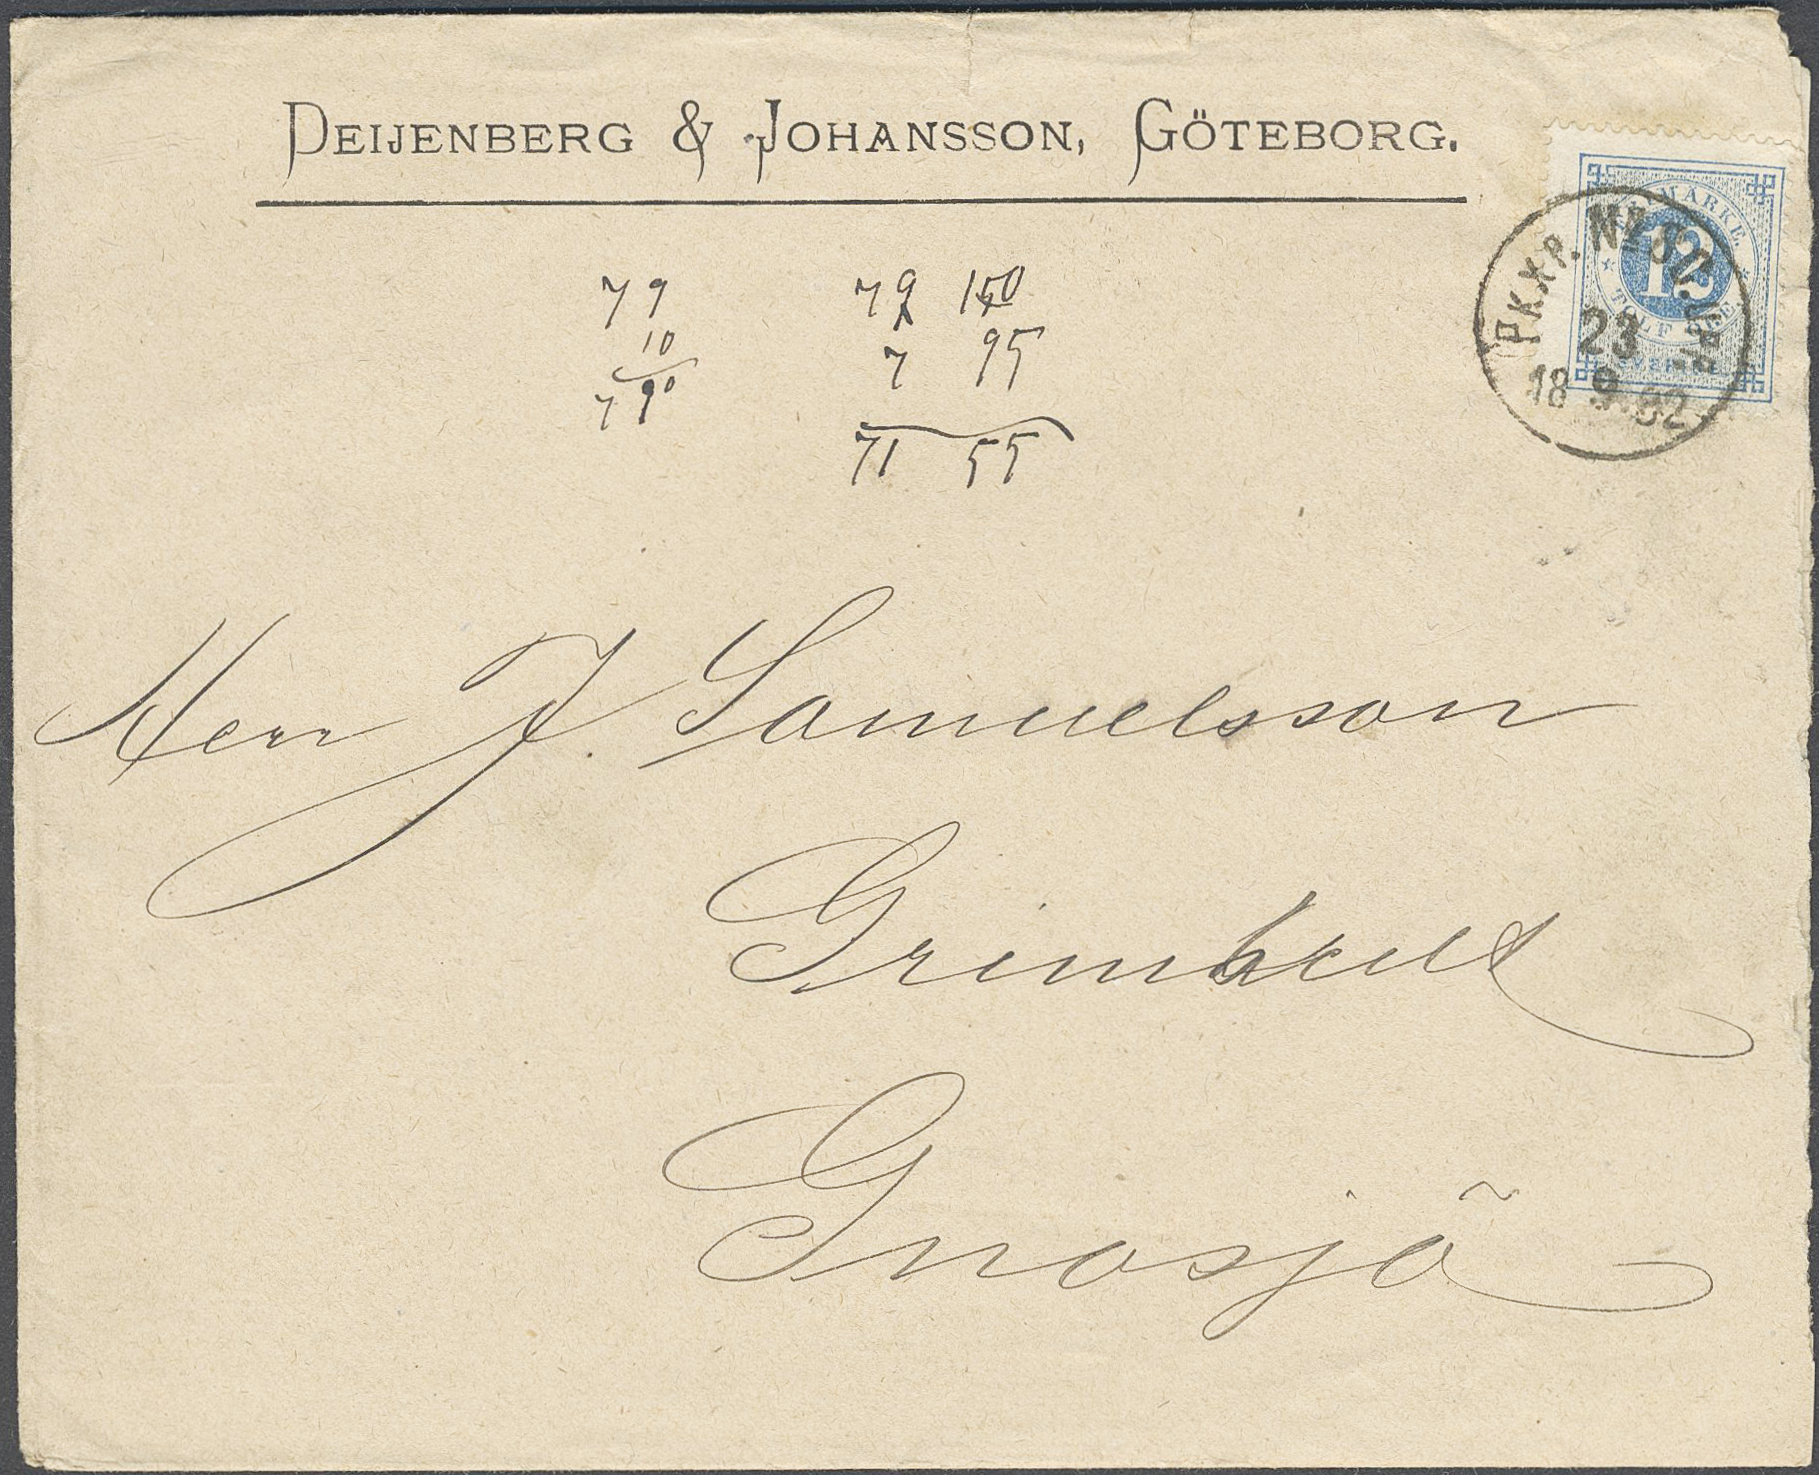 DEIJENBERG & JOHANSSON, GÖTEBORG.
FRIMÄRKE
12
TOLF ÖRE
PKXP. Nº 32.
23
18 9. 92
79 79 150
10 7 95
7 90
71 55
Herr J. Samuelsson
Grimhult
Gnosjö